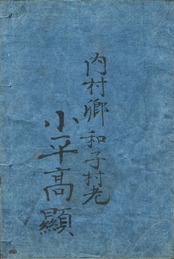 内村郷和子村老
小平高顯